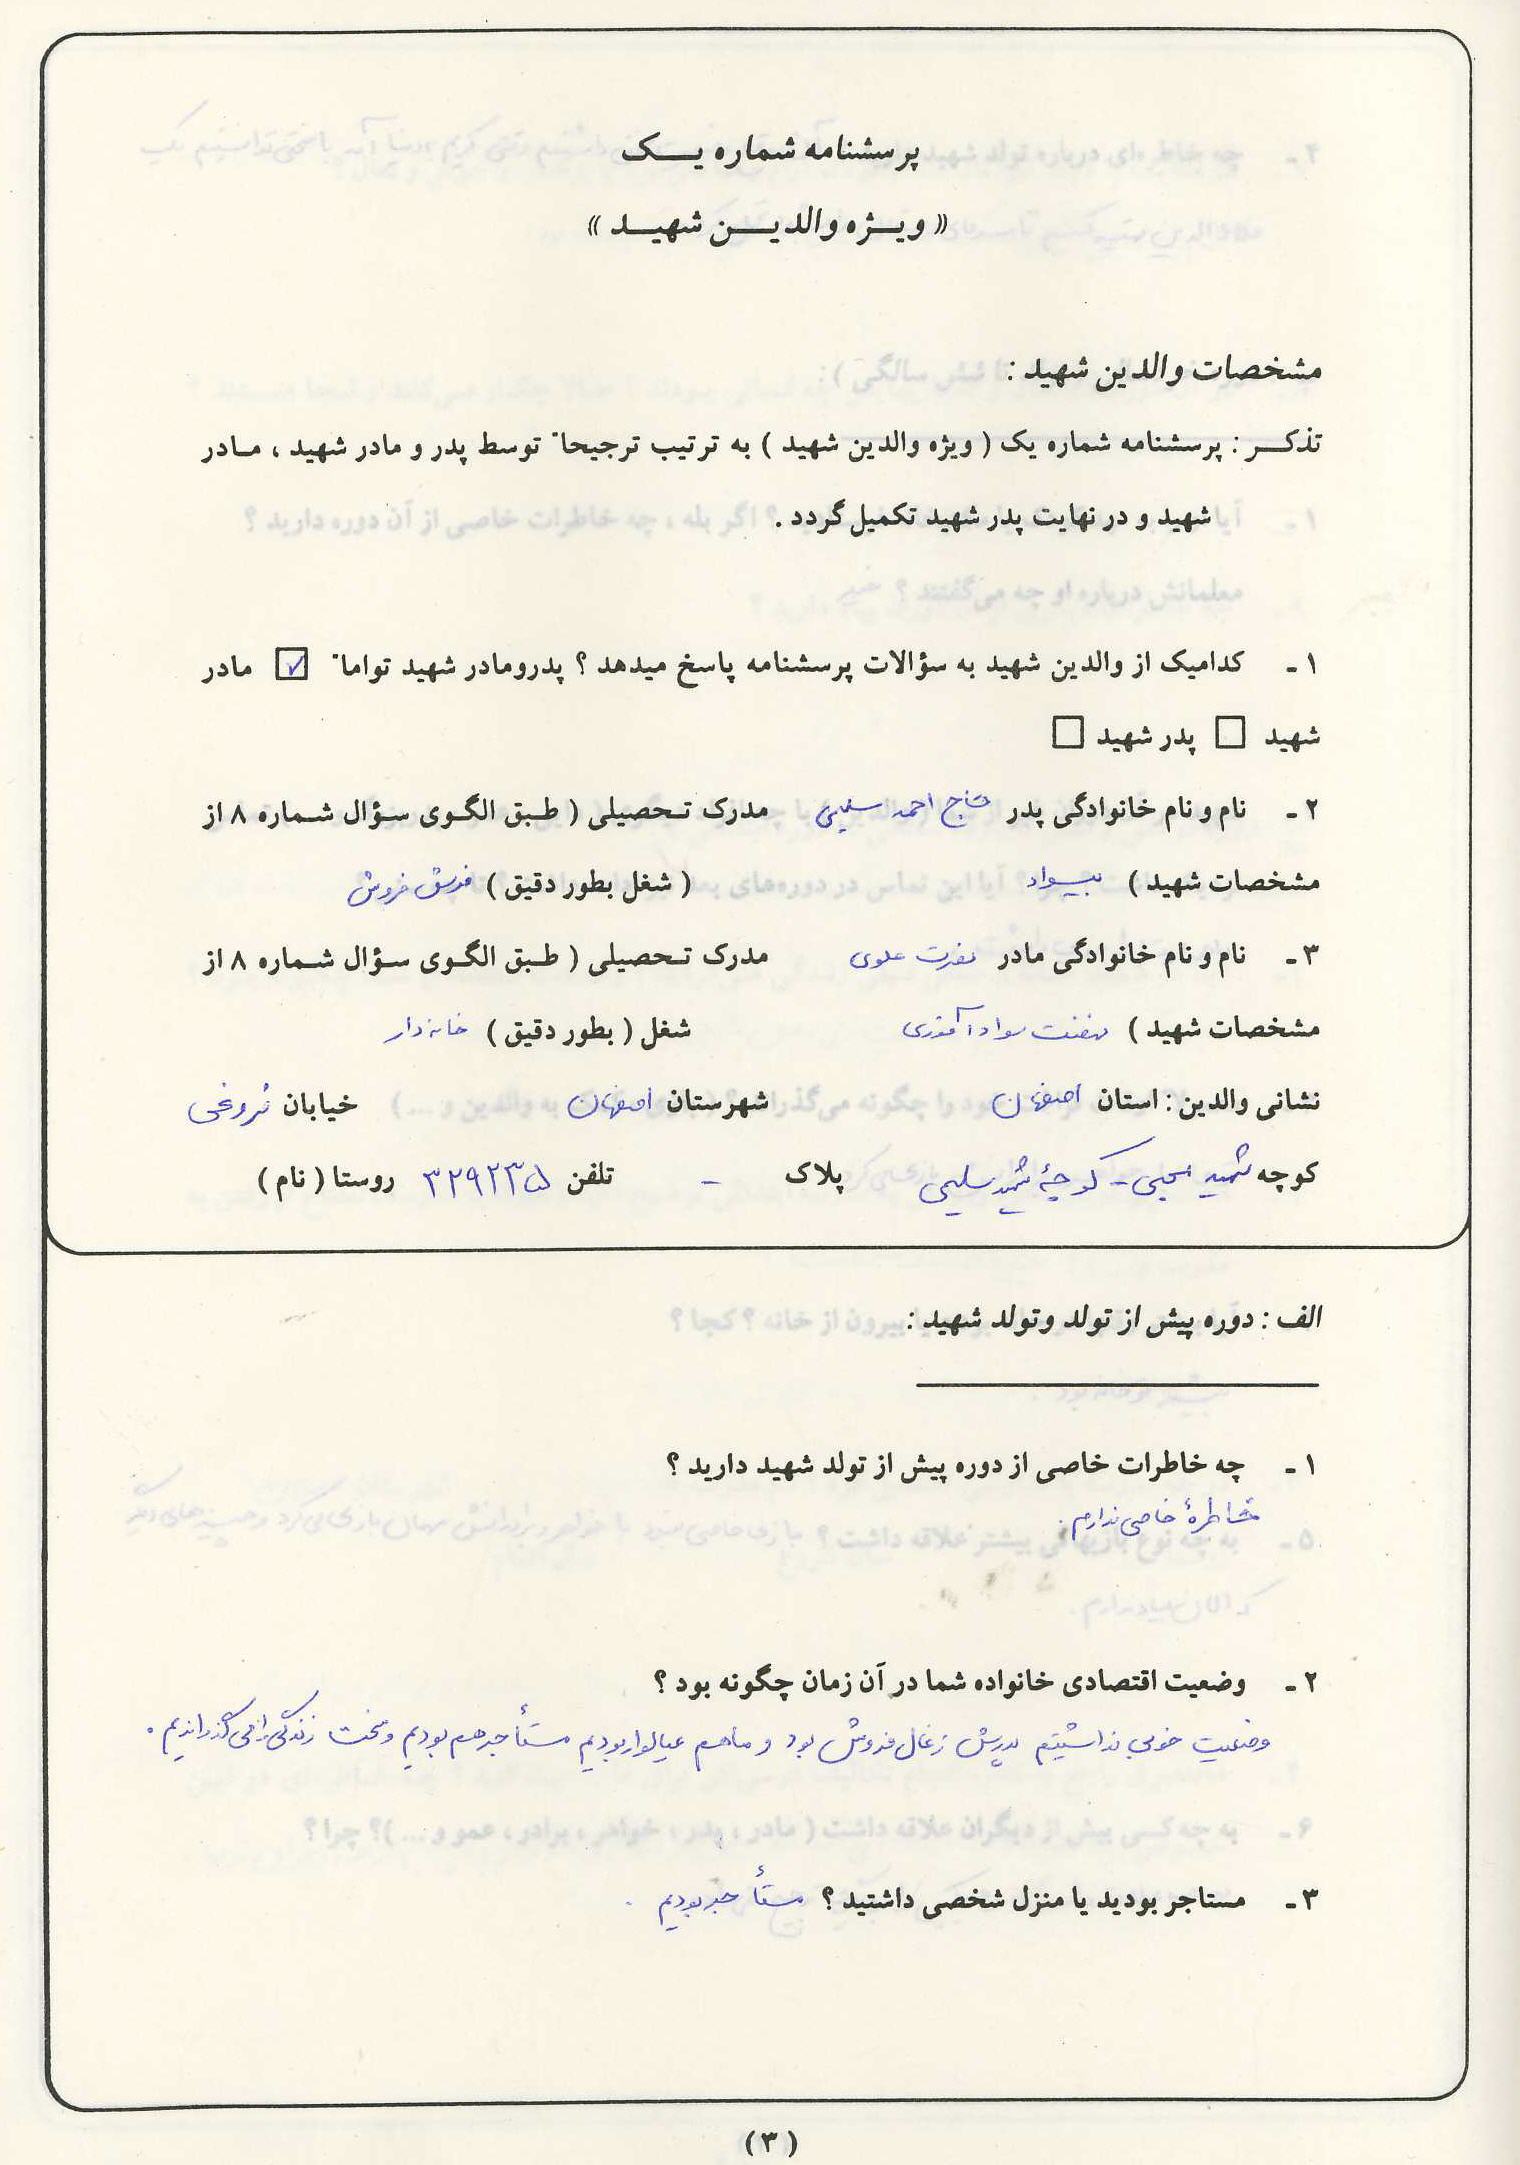 پرسشنامه شماره یک
« ویژه والدین شهید »
مشخصات والدین شهید :
تذکر : پرسشنامه شماره یک ( ویژه والدین شهید ) به ترتیب ترجیحا" توسط پدر و مادر شهید ، مادر
شهید و در نهایت پدر شهید تکمیل گردد .
۱ - کدامیک از والدین شهید به سؤالات پرسشنامه پاسخ میدهد ؟ پدرومادر شهید تواما" ☑ مادر
شهید □ پدر شهید □
۲ - نام و نام خانوادگی پدر حاج احمد سلیمی مدرک تحصیلی ( طبق الگوی سؤال شماره ۸ از
مشخصات شهید ) بیسواد ( شغل بطور دقیق ) فرش فروش
۳ - نام و نام خانوادگی مادر نصرت علوی مدرک تحصیلی ( طبق الگوی سؤال شماره ۸ از
مشخصات شهید ) نهضت سوادآموزی شغل ( بطور دقیق ) خانه دار
نشانی والدین : استان اصفهان شهرستان اصفهان خیابان فروغی
کوچه شهید - کوچۀ شهید سلیمی پلاک - تلفن ۳۲۹۲۳۵ روستا ( نام )
الف : دوره پیش از تولد وتولد شهید :
۱ - چه خاطرات خاصی از دوره پیش از تولد شهید دارید ؟
خاطرۀ خاصی ندارم .
۲ - وضعیت اقتصادی خانواده شما در آن زمان چگونه بود ؟
وضعیت خوبی نداشتیم پدرش زغال فروش بود و ما هم عیالوار بودیم مستأجر هم بودیم و سخت زندگی را می گذراندیم .
۳ - مستاجر بودید یا منزل شخصی داشتید ؟ مستأجر بودیم .
( ۳ )